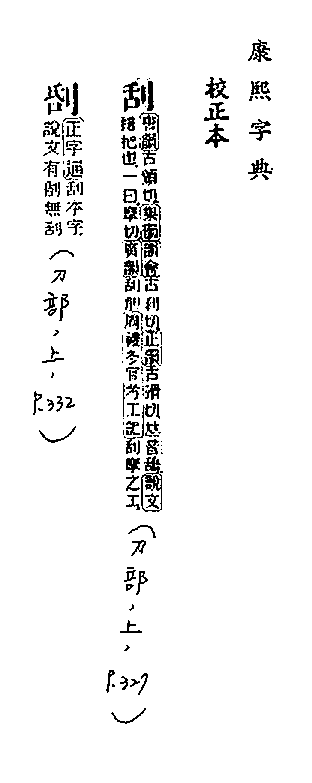 康熙字典
校正本
刮
唐韻古頒切集韻韻會古刹切正韻古滑切𠀤音鴰說文
掊把也一曰摩切廣韻刮削周禮冬官考工記刮摩之工
(刀部,上,P.327)
正字通刮本字
說文有𠛒無刮
(刀部,上,P.332)